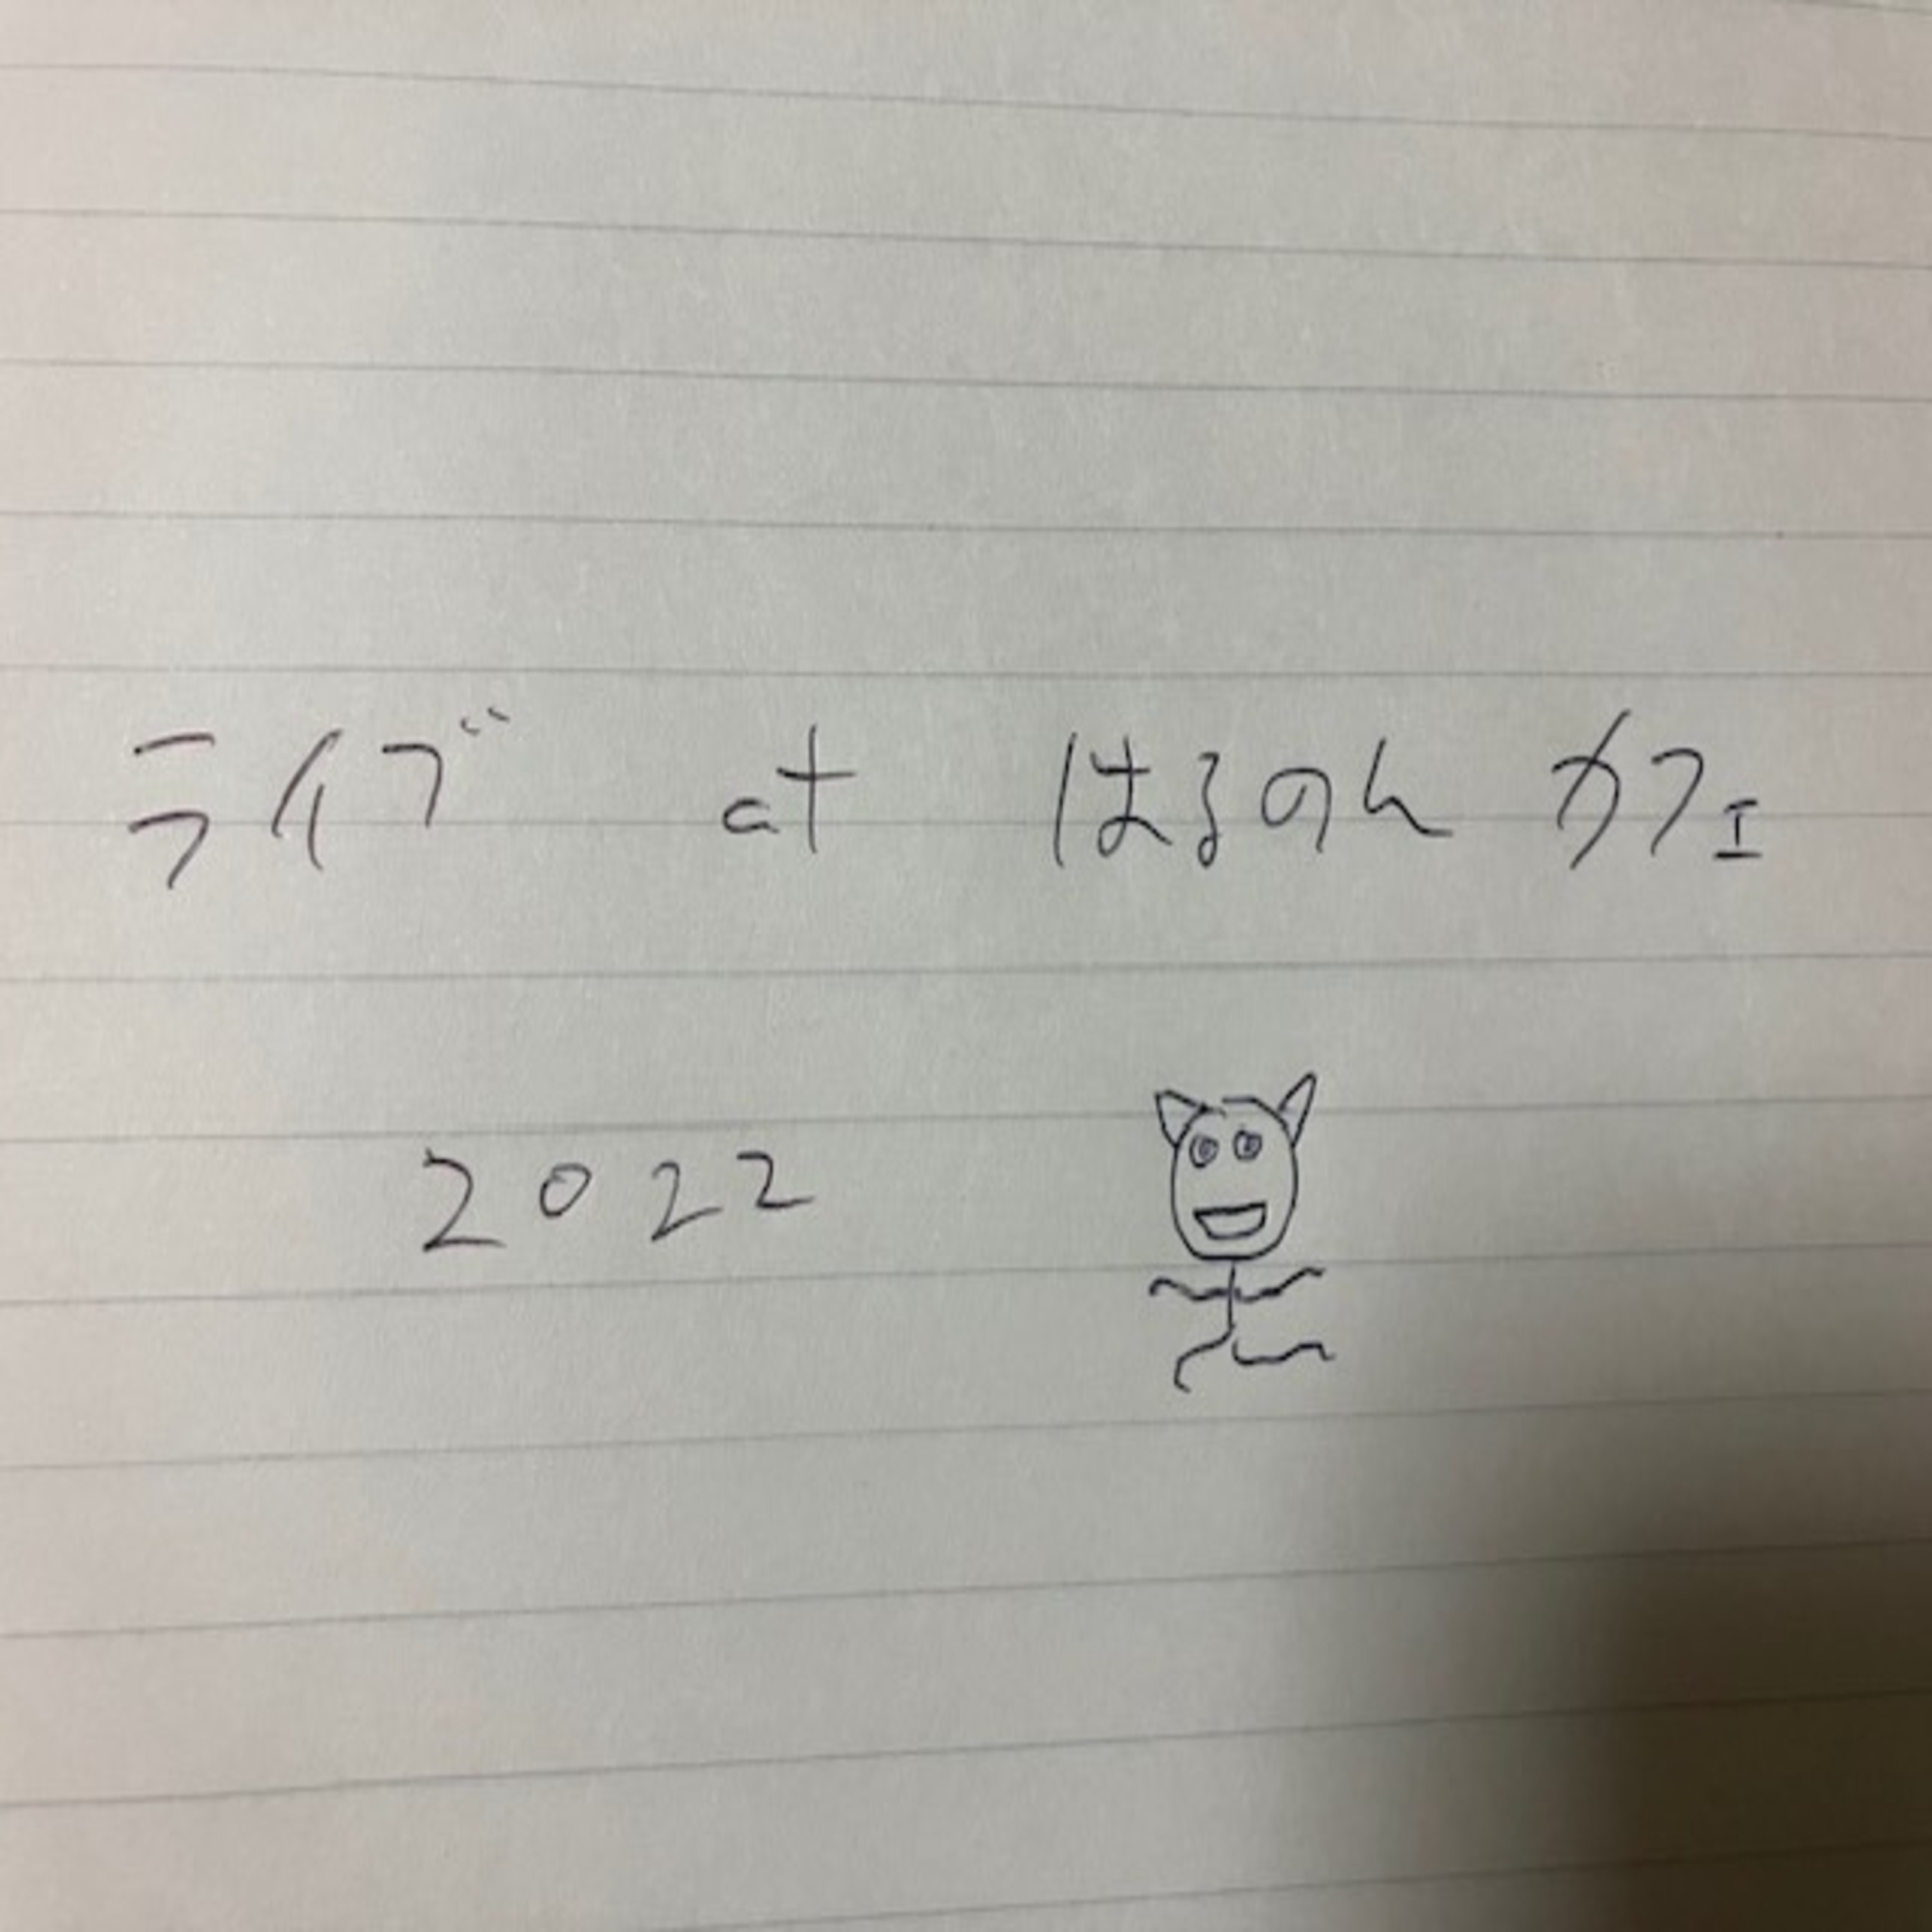 ライブ at はるのん カフェ
2022